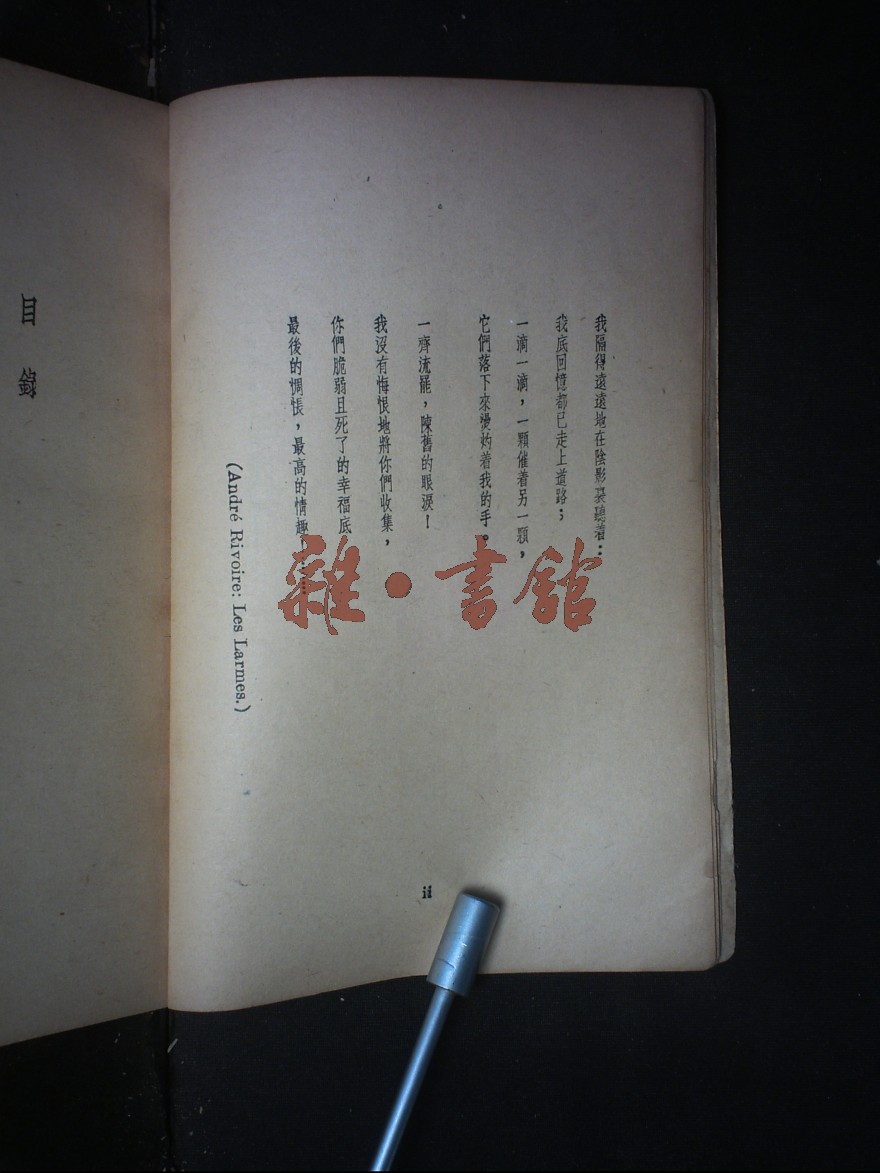 我隔得遠遠地在陰影裏聽着：
我底回憶都已走上道路；
一滴一滴，一顆催着另一顆，
它們落下來燙灼着我的手。
一齊流罷，陳舊的眼淚！
我沒有悔恨地將你們收集，
你們脆弱且死了的幸福底
最後的惆悵，最高的情趣！……
(André Rivoire: Les Larmes.)
ii
目錄
雜·書館